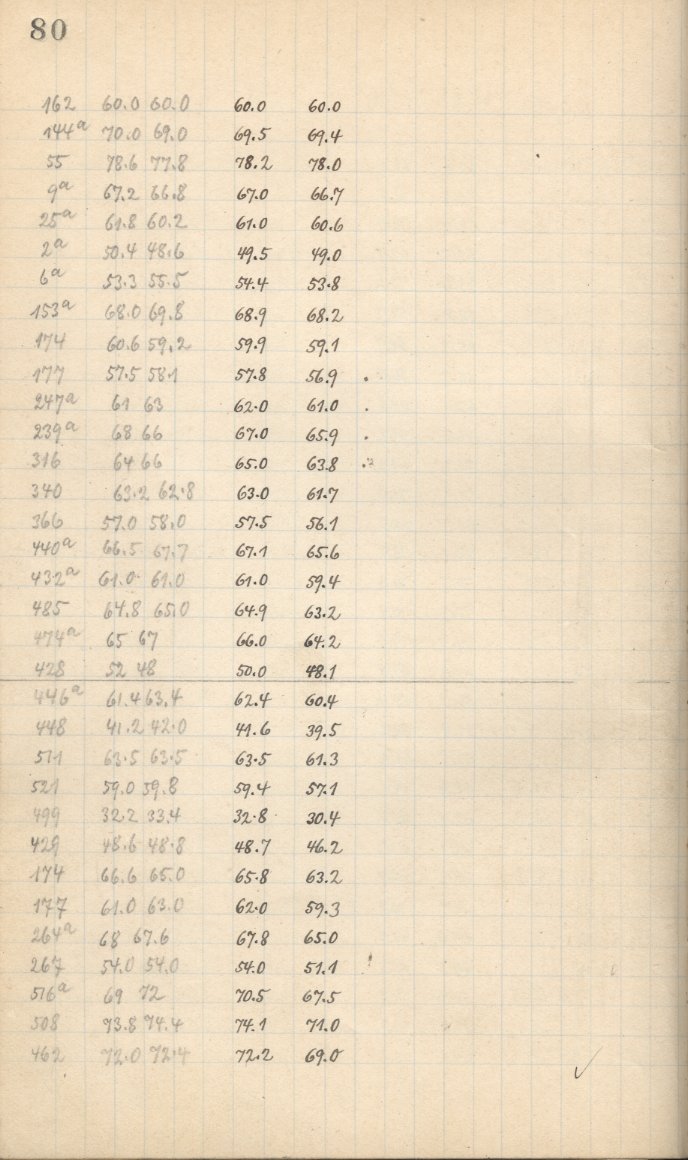 80
162 60.0 60.0 60.0 60.0
144a 70.0 69.0 69.5 69.4
55 78.6 77.8 78.2 78.0
9a 67.2 66.8 67.0 66.7
25a 61.8 60.2 61.0 60.6
2a 50.4 48.6 49.5 49.0
6a 53.3 55.5 54.4 53.8
153a 68.0 69.8 68.9 68.2
174 60.6 59.2 59.9 59.1
177 57.5 58.1 57.8 56.9 .
247a 61 63 62.0 61.0 .
239a 68 66 67.0 65.9 .
316 64 66 65.0 63.8
340 63.2 62.8 63.0 61.7
366 57.0 58.0 57.5 56.1
440a 66.5 67.7 67.1 65.6
432a 61.0 61.0 61.0 59.4
485 64.8 65.0 64.9 63.2
474a 65 67 66.0 64.2
428 52 48 50.0 48.1
446a 61.4 63.4 62.4 60.4
448 41.2 42.0 41.6 39.5
511 63.5 63.5 63.5 61.3
521 59.0 59.8 59.4 57.1
499 32.2 33.4 32.8 30.4
429 48.6 48.8 48.7 46.2
174 66.6 65.0 65.8 63.2
177 61.0 63.0 62.0 59.3
264a 68 67.6 67.8 65.0
267 54.0 54.0 54.0 51.1
516a 69 72 70.5 67.5
508 73.8 74.4 74.1 71.0
462 72.0 72.4 72.2 69.0
✓